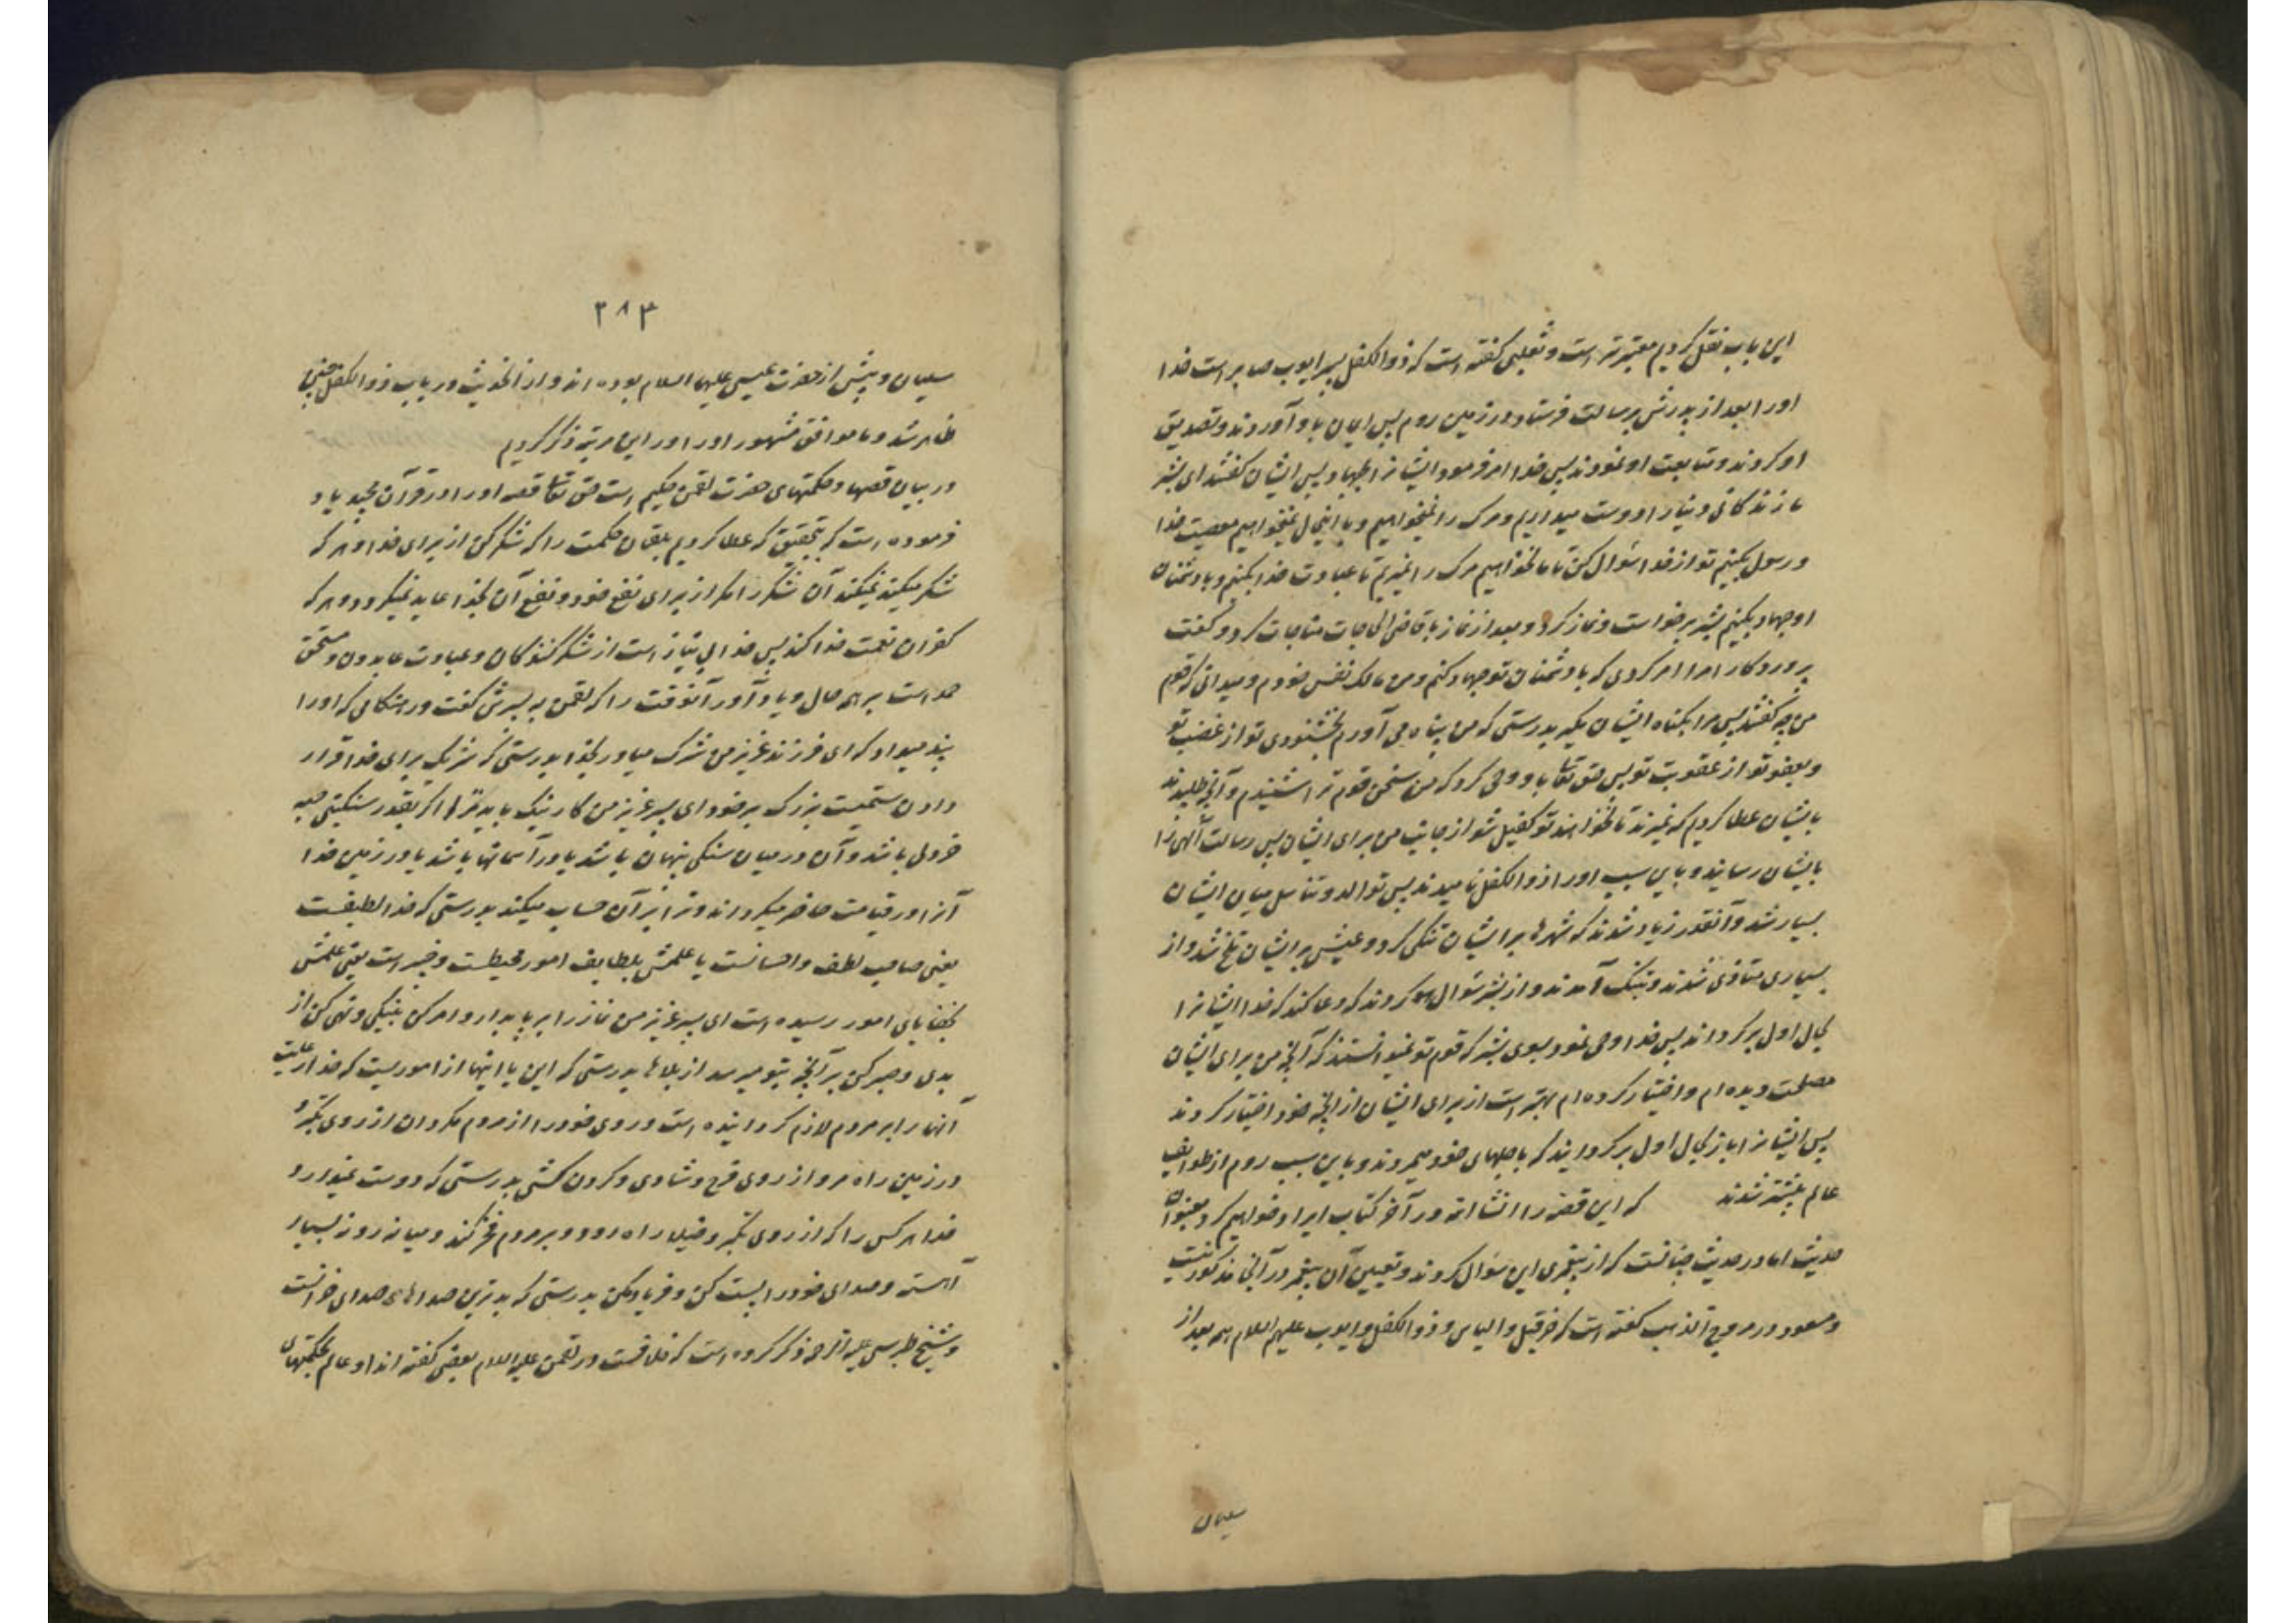 این باب نقل کردیم معتبرتر است و ثعلبی گفته است که ذوالکفل پسر ایوب صابر است خدا
اورا بعد از پدرش برسالت فرستاد در زمین روم پس ایمان باو آوردند و تصدیق
او کردند و متابعت او نمودند پس خدا امر فرمود ایشانرا بجهاد پس ایشان گفتند ای بشر
ما زندگانی دنیا را دوست میداریم و مرک را نمیخواهیم و با اینحال نمیخواهیم معصیت خدا
و رسول بکنیم تو از خدا سؤال کن تا ما نخواهیم مرک را نمیریم تا عبادت خدا بکنیم و با دشمنان
او جهاد بکنیم بشر برخواست و نماز کرد و بعد از نماز با قاضی الحاجات مناجات کرد و گفت
پروردکارا مرا امر کردی که با دشمنان تو جهاد کنم و من مالک نفس خودم و میدانی که قوم
من چه گفتند پس مرا بکناه ایشان مگیر بدرستی که من پناه می آورم بخشنودی تو از غضب تو
و بعفو تو از عقوبت تو پس حق تعالی باو وحی کرد که من سخن قوم ترا شنیدم و آنچه طلبیدند
بایشان عطا کردم که نمیرند تا نخواهند تو کفیل شو از جانب من برای ایشان پس رسالت الهی را
بایشان رسانید و باین سبب اورا ذوالکفل نامیدند پس توالد و تناسل میان ایشان
بسیار شد و آنقدر زیاد شدند که شهرها بر ایشان تنگی کرد و عیش بر ایشان تلخ شد و از
بسیاری متاذی شدند و بتنک آمدند و از بشر سؤال کردند که دعا کند که خدا ایشانرا
بحال اول برگرداند پس خدا وحی نمود بسوی بشر که قوم تو نمیدانستند که آنچه من برای ایشان
مصلحت دیده ام و اختیار کرده ام بهتر است از برای ایشان از آنچه خود اختیار کردند
پس ایشانرا باز بحال اول برگردانید که باجلهای خود میمردند و باین سبب روم از طوایف
عالم بیشتر شدند که این قصه را انشا الله در آخر کتاب ایراد خواهیم کرد بعنوان
حدیث اما در حدیث چنانست که از پیغمبری این سؤال کردند و تعیین آن پیغمبر در آنجا مذکور نیست
و مسعود در مروج الذهب گفته است که حزقیل و الیاس و ذوالکفل و ایوب علیهم السلام همه بعد از
سلیمان
۲۸۳
سلیمان و پیش از حضرت عیسی علیهما السلام بوده اند و از احادیث در باب ذوالکفل چنین
ظاهر شد و ما موافق مشهور اورا در این مرتبه ذکر کردیم
در بیان قصها و حکمتهای حضرت لقمن حکیم است حق تعالی قصه اورا در قرآن مجید یاد
فرموده است که بتحقیق که عطا کردیم بلقمان حکمت را که شکر کن از برای خدا و هر که
شکر میکند نمیکند آن شکر را مگر از برای نفع خود و نفع آن بخدا عاید نمیگردد و هر که
کفران نعمت خدا کند پس خدا بی نیاز است از شکر کنندگان و عبادت عابدون و مستحق
حمد است بر همه حال و یاد آور آنوقت را که لقمن به پسرش گفت در هنگامی که اورا
پند میداد که ای فرزند عزیز من شرک میاور بخدا بدرستی که شریک برای خدا قرار
دادن ستمیست بزرگ بر خود ای پسر عزیز من کار نیک یا بد ترا اگر بقدر سنگینی حبه
خردلی باشد و آن در میان سنگی پنهان باشد یا در آسمانها باشد یا در زمین خدا
آنرا در قیامت حاضر میگرداند و ترا بر آن حساب میکند بدرستی که خدا لطیفست
یعنی صاحب لطف و احسانست یا علمش بلطایف امور محیطست و خبیر است یعنی علمش
بخفایای امور رسیده است ای پسر عزیز من نماز را برپا بدار و امر کن بنیکی و نهی کن از
بدی و صبر کن بر آنچه بتو میرسد از بلاها بدرستی که این یا اینها از اموریست که خدا رعایت
آنها را بر مردم لازم گردانیده است و روی خود را از مردم مگردان از روی تکبر و
در زمین راه مرو از روی فرح و شادی و گردن کشی بدرستی که دوست نمیدارد
خدا هر کس را که از روی تکبر و خیلا راه رود و بر مردم فخر کند و میانه رو نه بسیار
آهسته و صدای خود را پست کن و فریاد مکن بدرستی که بدترین صداهای صدای خرانست
و شیخ طبرسی علیه الرحمه ذکر کرده است که خلافست در لقمن علیه السلام بعضی گفته اند او عالم بحکمتهای